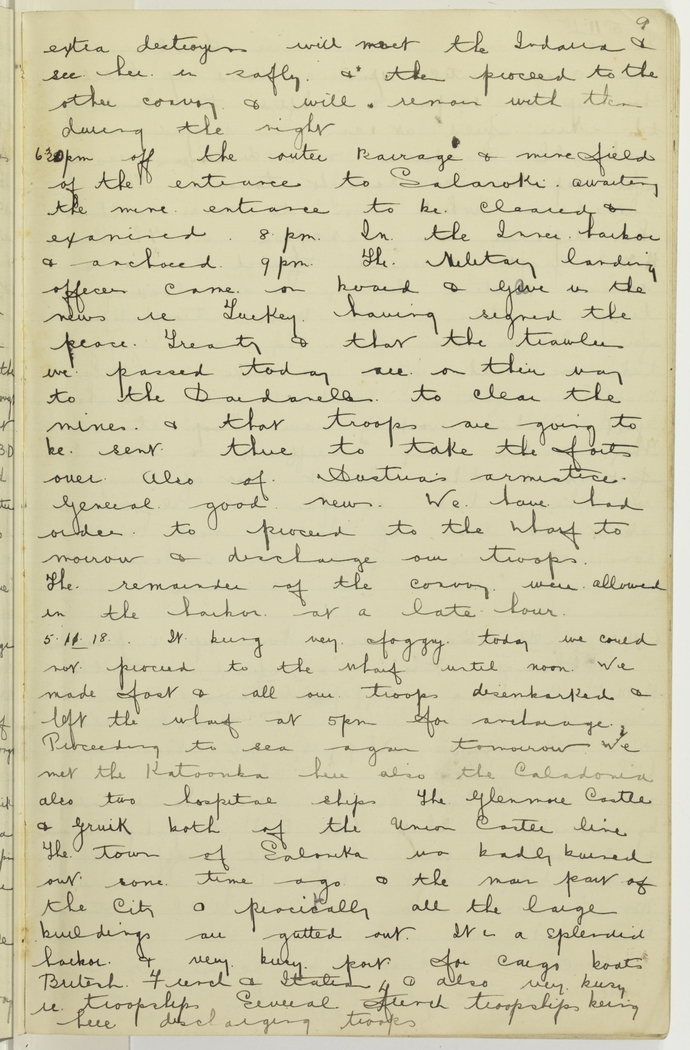 9
extra destroyers will meet the Indarra &
see her in safly. & then proceed to the
other convoy & will remain with them
during the night
630pm off the outer Barrage & mine field
of the entrance to Salaroki. awaiting
the mine entrance to be cleared &
examined. 8 pm. In the Inner harbor
& anchored. 9 pm. The Miletary landing
officer came on board & gave us the
news re Turkey. having signed the
peace. Treaty & that the trawlers
we passed today are on their way
to the Dardanells. to clear the
mines. & that troops are going to
be. sent. thre to take the forts
over. Also of. Austria's armistice.
General good news. We have had
orders to proceed to the Wharf to
morrow & discharge our troops.
The remainder of the convoy were allowed
in the harbor at a late hour.
5.11.18. It being very foggy. today we could
not proceed to the wharf until noon. We
made fast & all our troops disembarked &
left the wharf at 5pm for anchorage.
Proceeding to sea again tomorrow We
met the Katoomba here also the Caladonia
also two hospital ships The Glenmore Castle
& both of the Union Castle line
The town of Salonika was badly burned
out some time ago & the main part of
the City & all the large
buildings are gutted out. It is a splendid
harbor & very busy port for cargo boats
British. French & Italian & also very busy
re. troopships Several French troopships being
here discharging troops